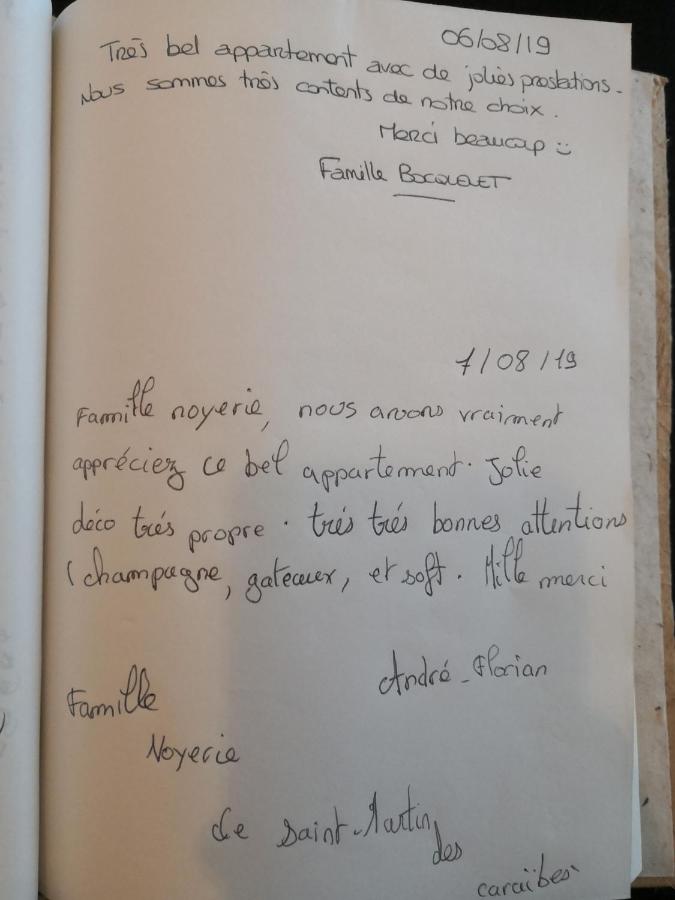 06/08/19
Très bel appartement avec de jolies prestations.
Nous sommes très contents de notre choix.
Merci beaucoup :)
Famille BOCQUELET
7/08/19
Famille noyerie, nous avons vraiment
appréciez ce bel appartement. Jolie
déco trés propre. trés trés bonnes attentions
(champagne, gateaux, et soft. Mille merci
André-Florian
Famille
Noyerie
de Saint-Martin
des
caraïbes.